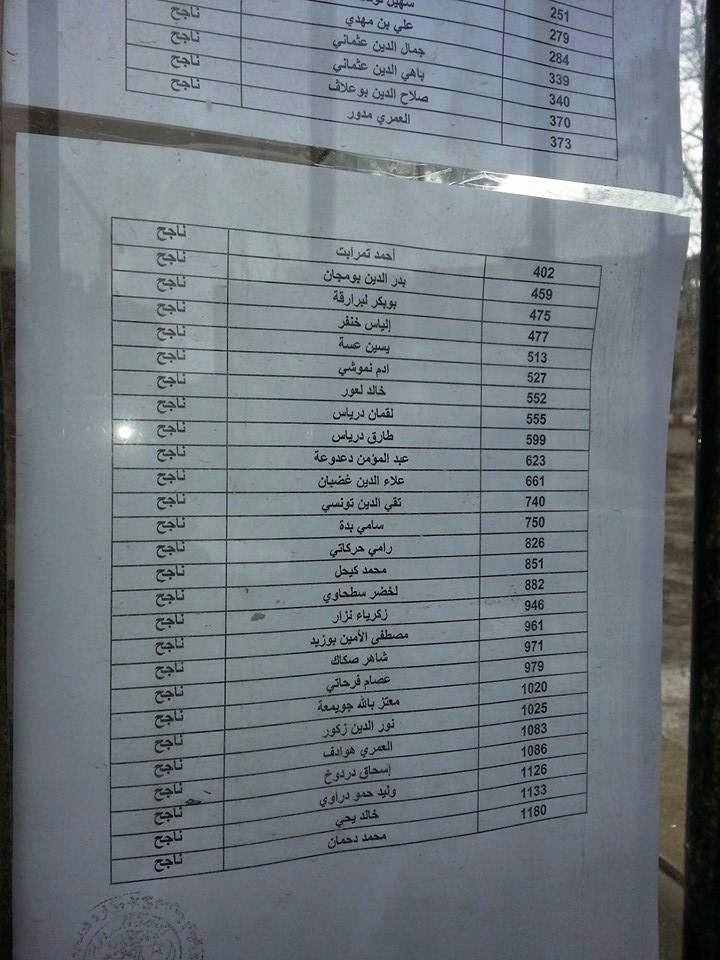 251
279 سهيل
284 علي بن مهدي ناجح
339 جمال الدين عثماني ناجح
340 باهي الدين عثماني ناجح
370 صلاح الدين بوعلاق ناجح
373 العمري مدور ناجح
402 أحمد تمرابت ناجح
459 بدر الدين بومجان ناجح
475 بوبكر لبرارقة ناجح
477 إلياس خنفر ناجح
513 يسين عسة ناجح
527 ادم نموشي ناجح
552 خالد لعور ناجح
555 لقمان درياس ناجح
599 طارق درياس ناجح
623 عبد المؤمن دعدوعة ناجح
661 علاء الدين غضبان ناجح
740 تقي الدين تونسي ناجح
750 سامي بدة ناجح
826 رامي حركاتي ناجح
851 محمد كيحل ناجح
882 لخضر سطحاوي ناجح
946 زكرياء نزار ناجح
961 مصطفى الأمين بوزيد ناجح
971 شاهر صكاك ناجح
979 عصام فرحاتي ناجح
1020 معتز بالله جويمعة ناجح
1025 نور الدين زكور ناجح
1083 العمري هوادف ناجح
1086 إسحاق دردوخ ناجح
1126 وليد حمو دراوي ناجح
1133 خالد يحي ناجح
1180 محمد دحمان ناجح